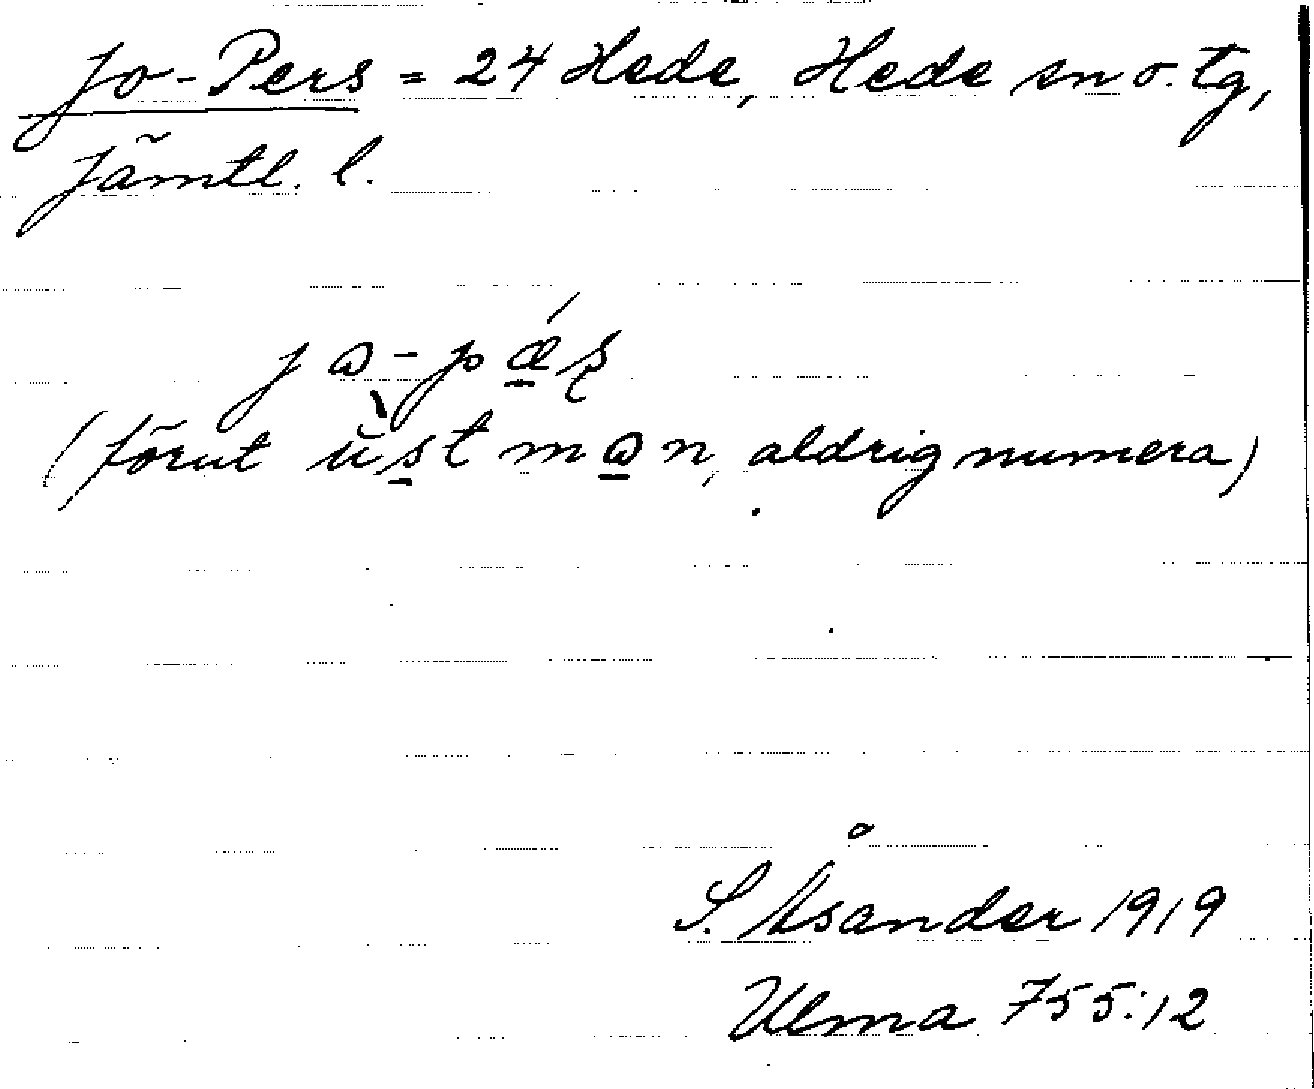 Jo-Pers = 24 Hede, Hede sn o. tg,
Jämtl. l.
(förut aldrig numera)
S. Åsander 1919
Ulma 755:12